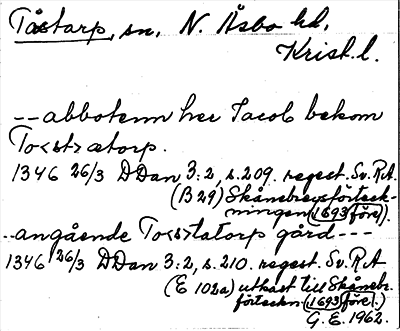 Tåstarp, sn, N. Åsbo hd,
Krist. l.
--abboten her Jacob bekom
To<st>atorp.
1346 26/3 DDan 3:2, s. 209. regest. Sv. R.A
(B 29) Skånebrevsförteck-
ningen (1693 före).
--angående To<st>atorp gård ---
1346 26/3 DDan 3:2, s. 210. regest. Sv. R.A
(E 102a) utkast till Skånebr.
förteckn. (1693 före.)
G. E. 1962.